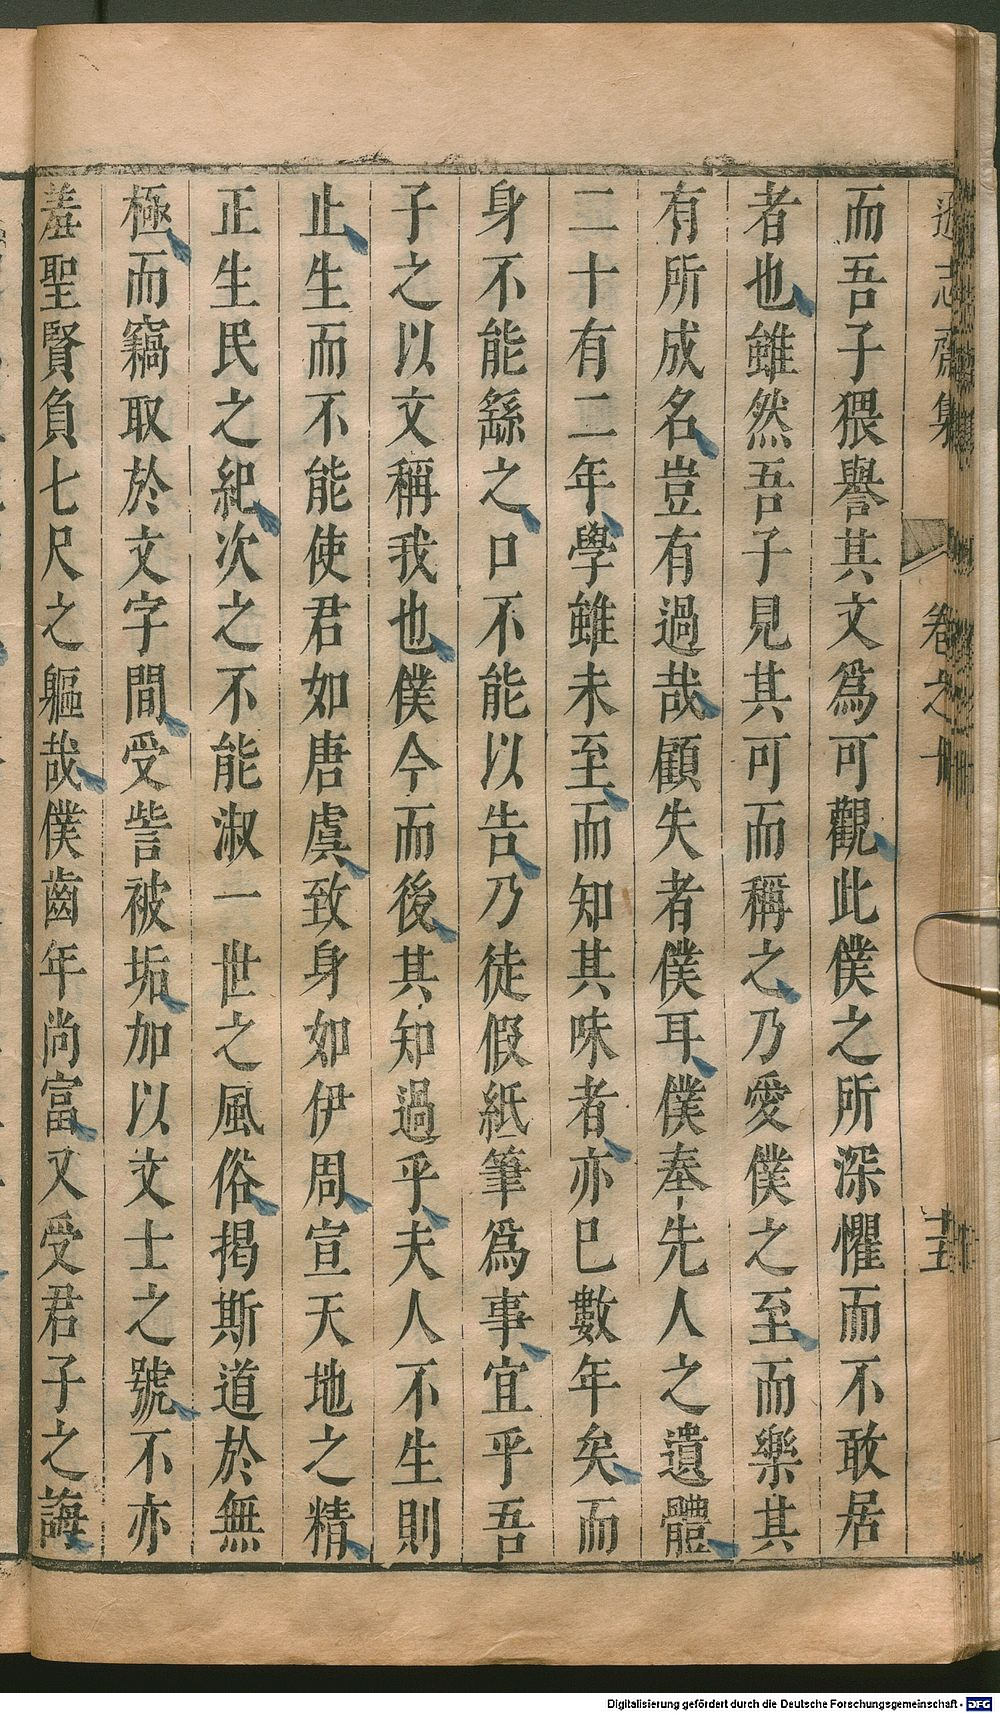 而吾子猥譽其文爲可觀此僕之所深懼而不敢居
者也雖然吾子見其可而稱之乃愛僕之至而樂其
有所成名豈有過哉顧失者僕耳僕奉先人之遺體
二十有二年學雖未至而知其味者亦已數年矣而
身不能繇之口不能以告乃徒假紙筆爲事宜乎吾
子之以文稱我也僕今而後其知過乎夫人不生則
止生而不能使君如唐虞致身如伊周宣天地之精
正生民之紀次之不能淑一世之風俗揭斯道於無
極而竊取於文字間受訾被垢加以文士之號不亦
羞聖賢負七尺之軀哉僕齒年尚富又受君子之誨
志齋集 卷之 十五
Digitalisierung gefördert durch die Deutsche Forschungsgemeinschaft - DFG